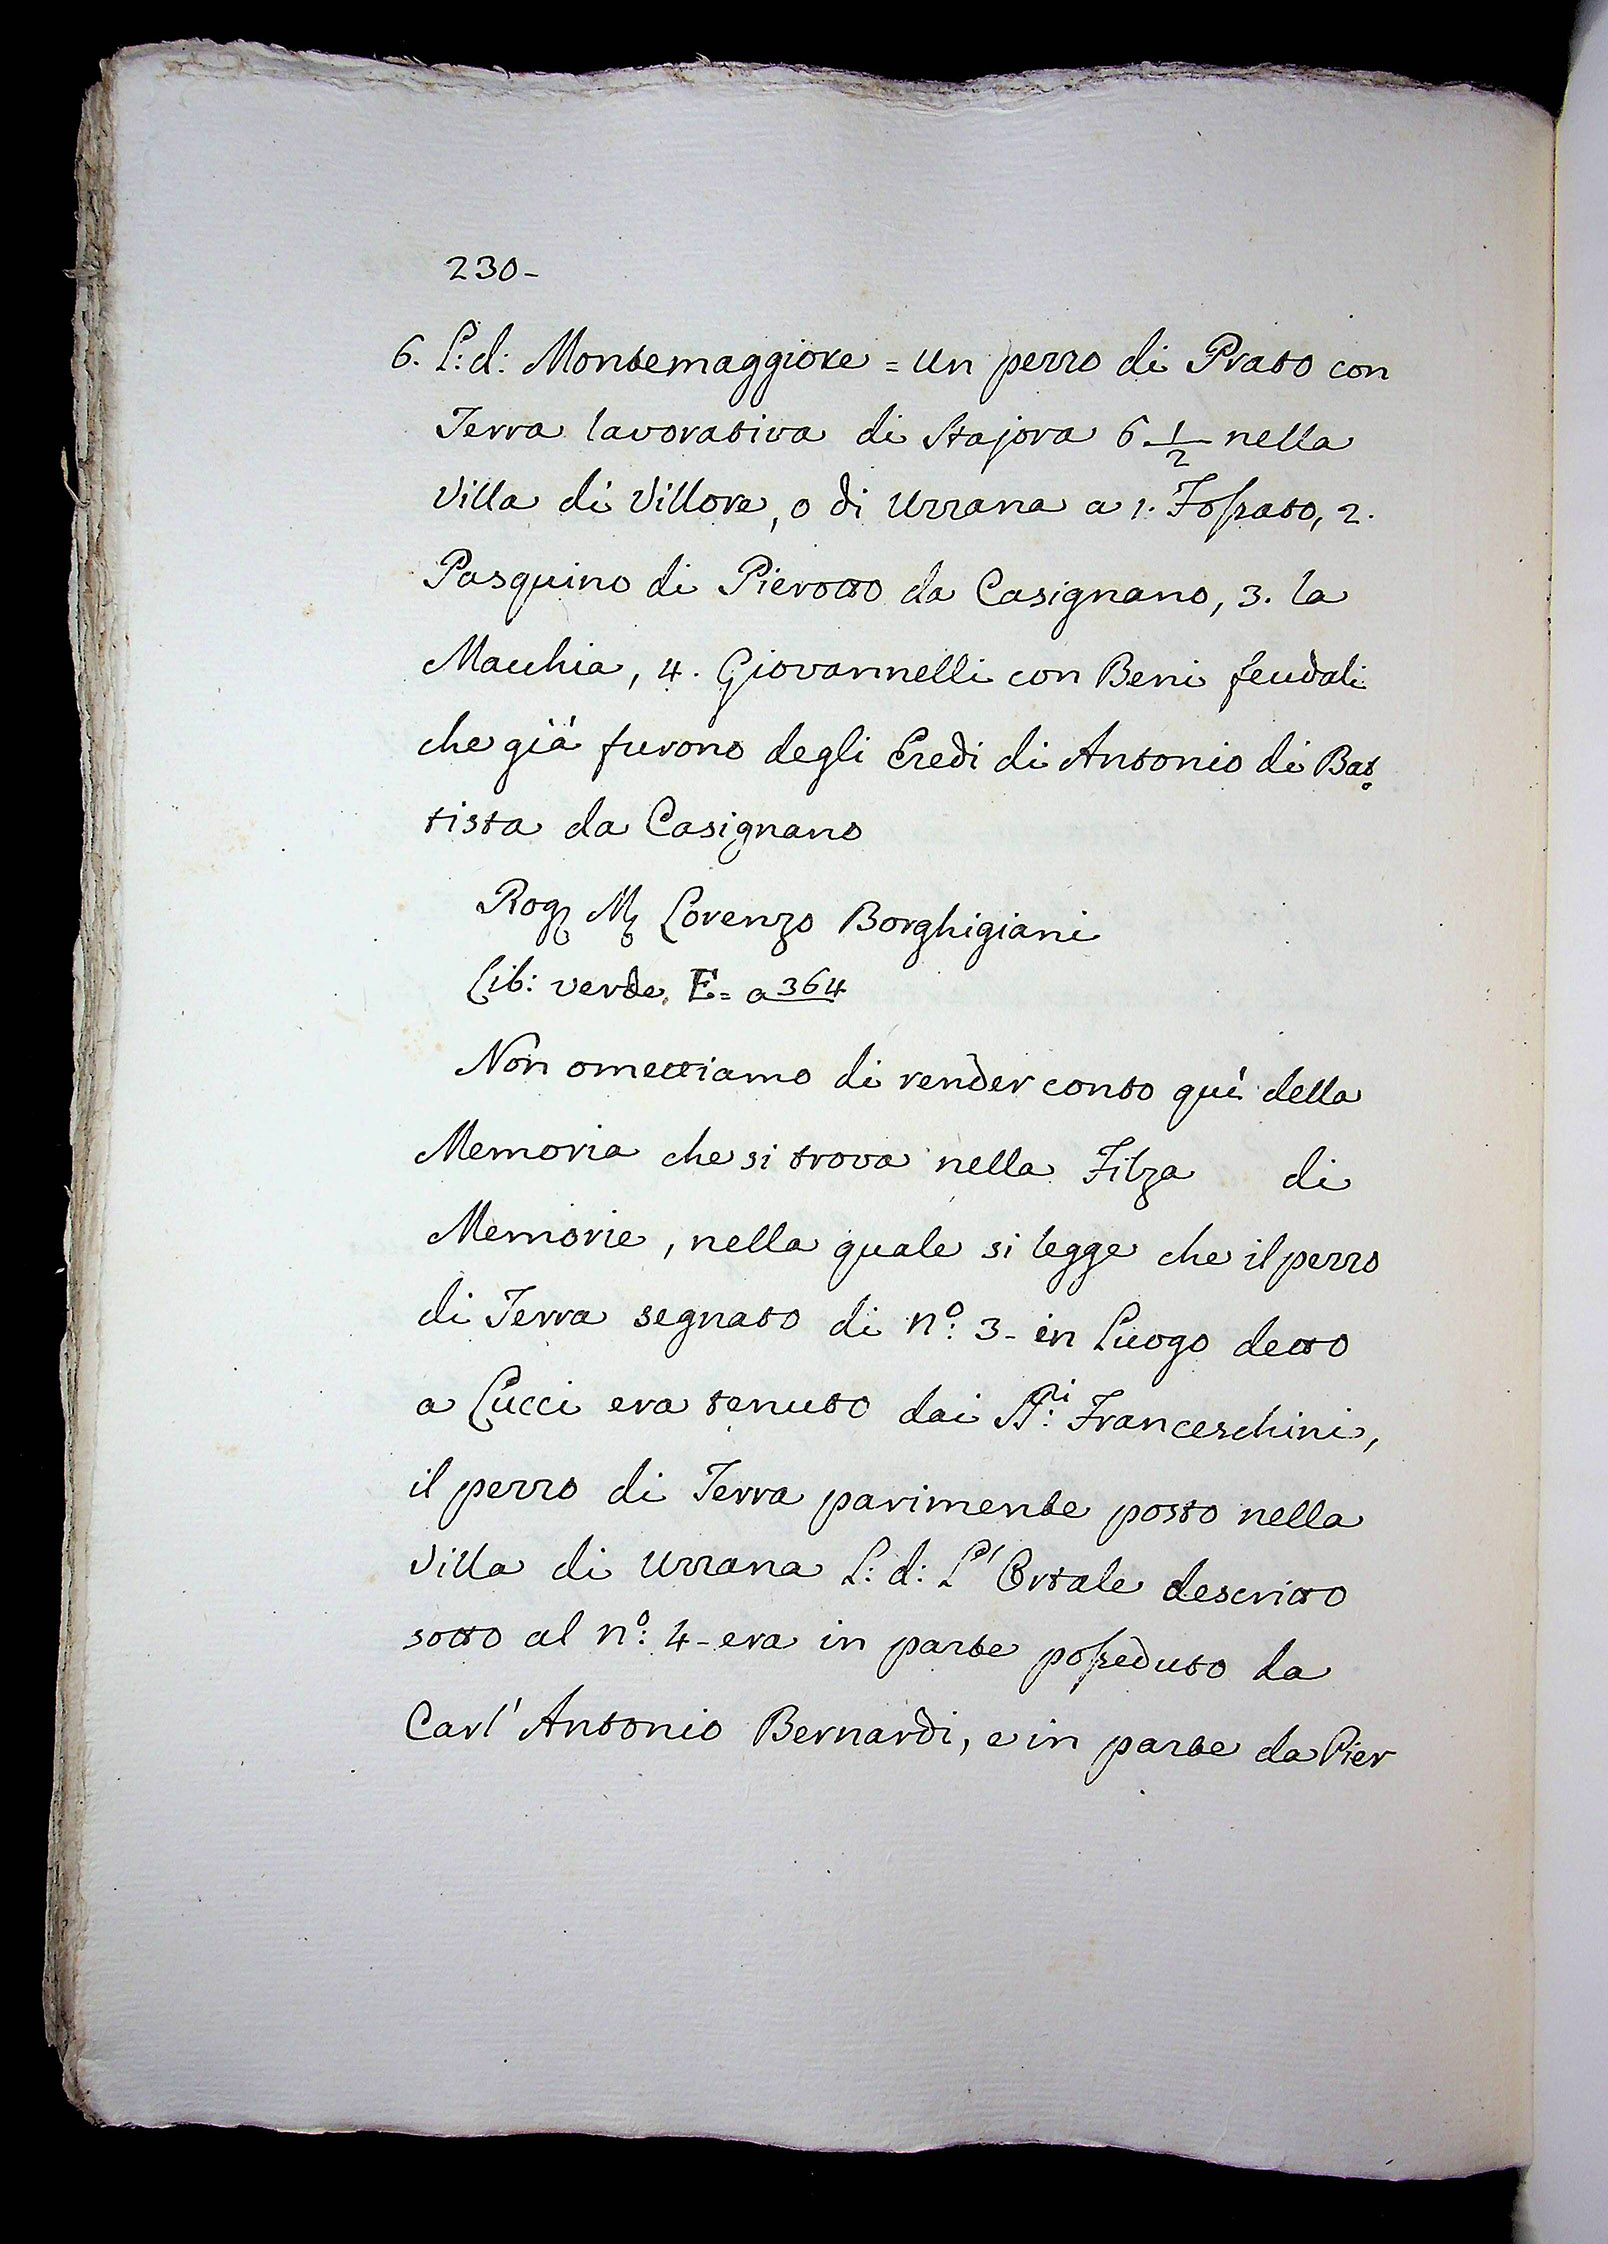 230-
6. L: d: Montemaggiore = un pezzo di Prato con
Terra lavorativa di Stajora 6 1/2 nella
Villa di Villore, o di Uzzana a 1. Fossato, 2.
Pasquino di Pierotto da Casignano, 3. la
Macchia, 4. Giovannelli con Beni feudali
che già furono degli Eredi di Antonio di Bat
tista da Casignano
Rog. M. Lorenzo Borghigiani
Lib: verde. E = a 364
Non omettiamo di render conto quì della
Memoria che si trova nella Filza di
Memorie, nella quale si legge che il pezzo
di Terra segnato di n.º: 3- in Luogo detto
a Lucci era tenuto dai Franceschini,
il pezzo di Terra parimente posto nella
Villa di Uzzana L: d: L' Ortale descritto
sotto al nº: 4- era in parte posseduto da
Carl' Antonio Bernardi, e in parte da Pier